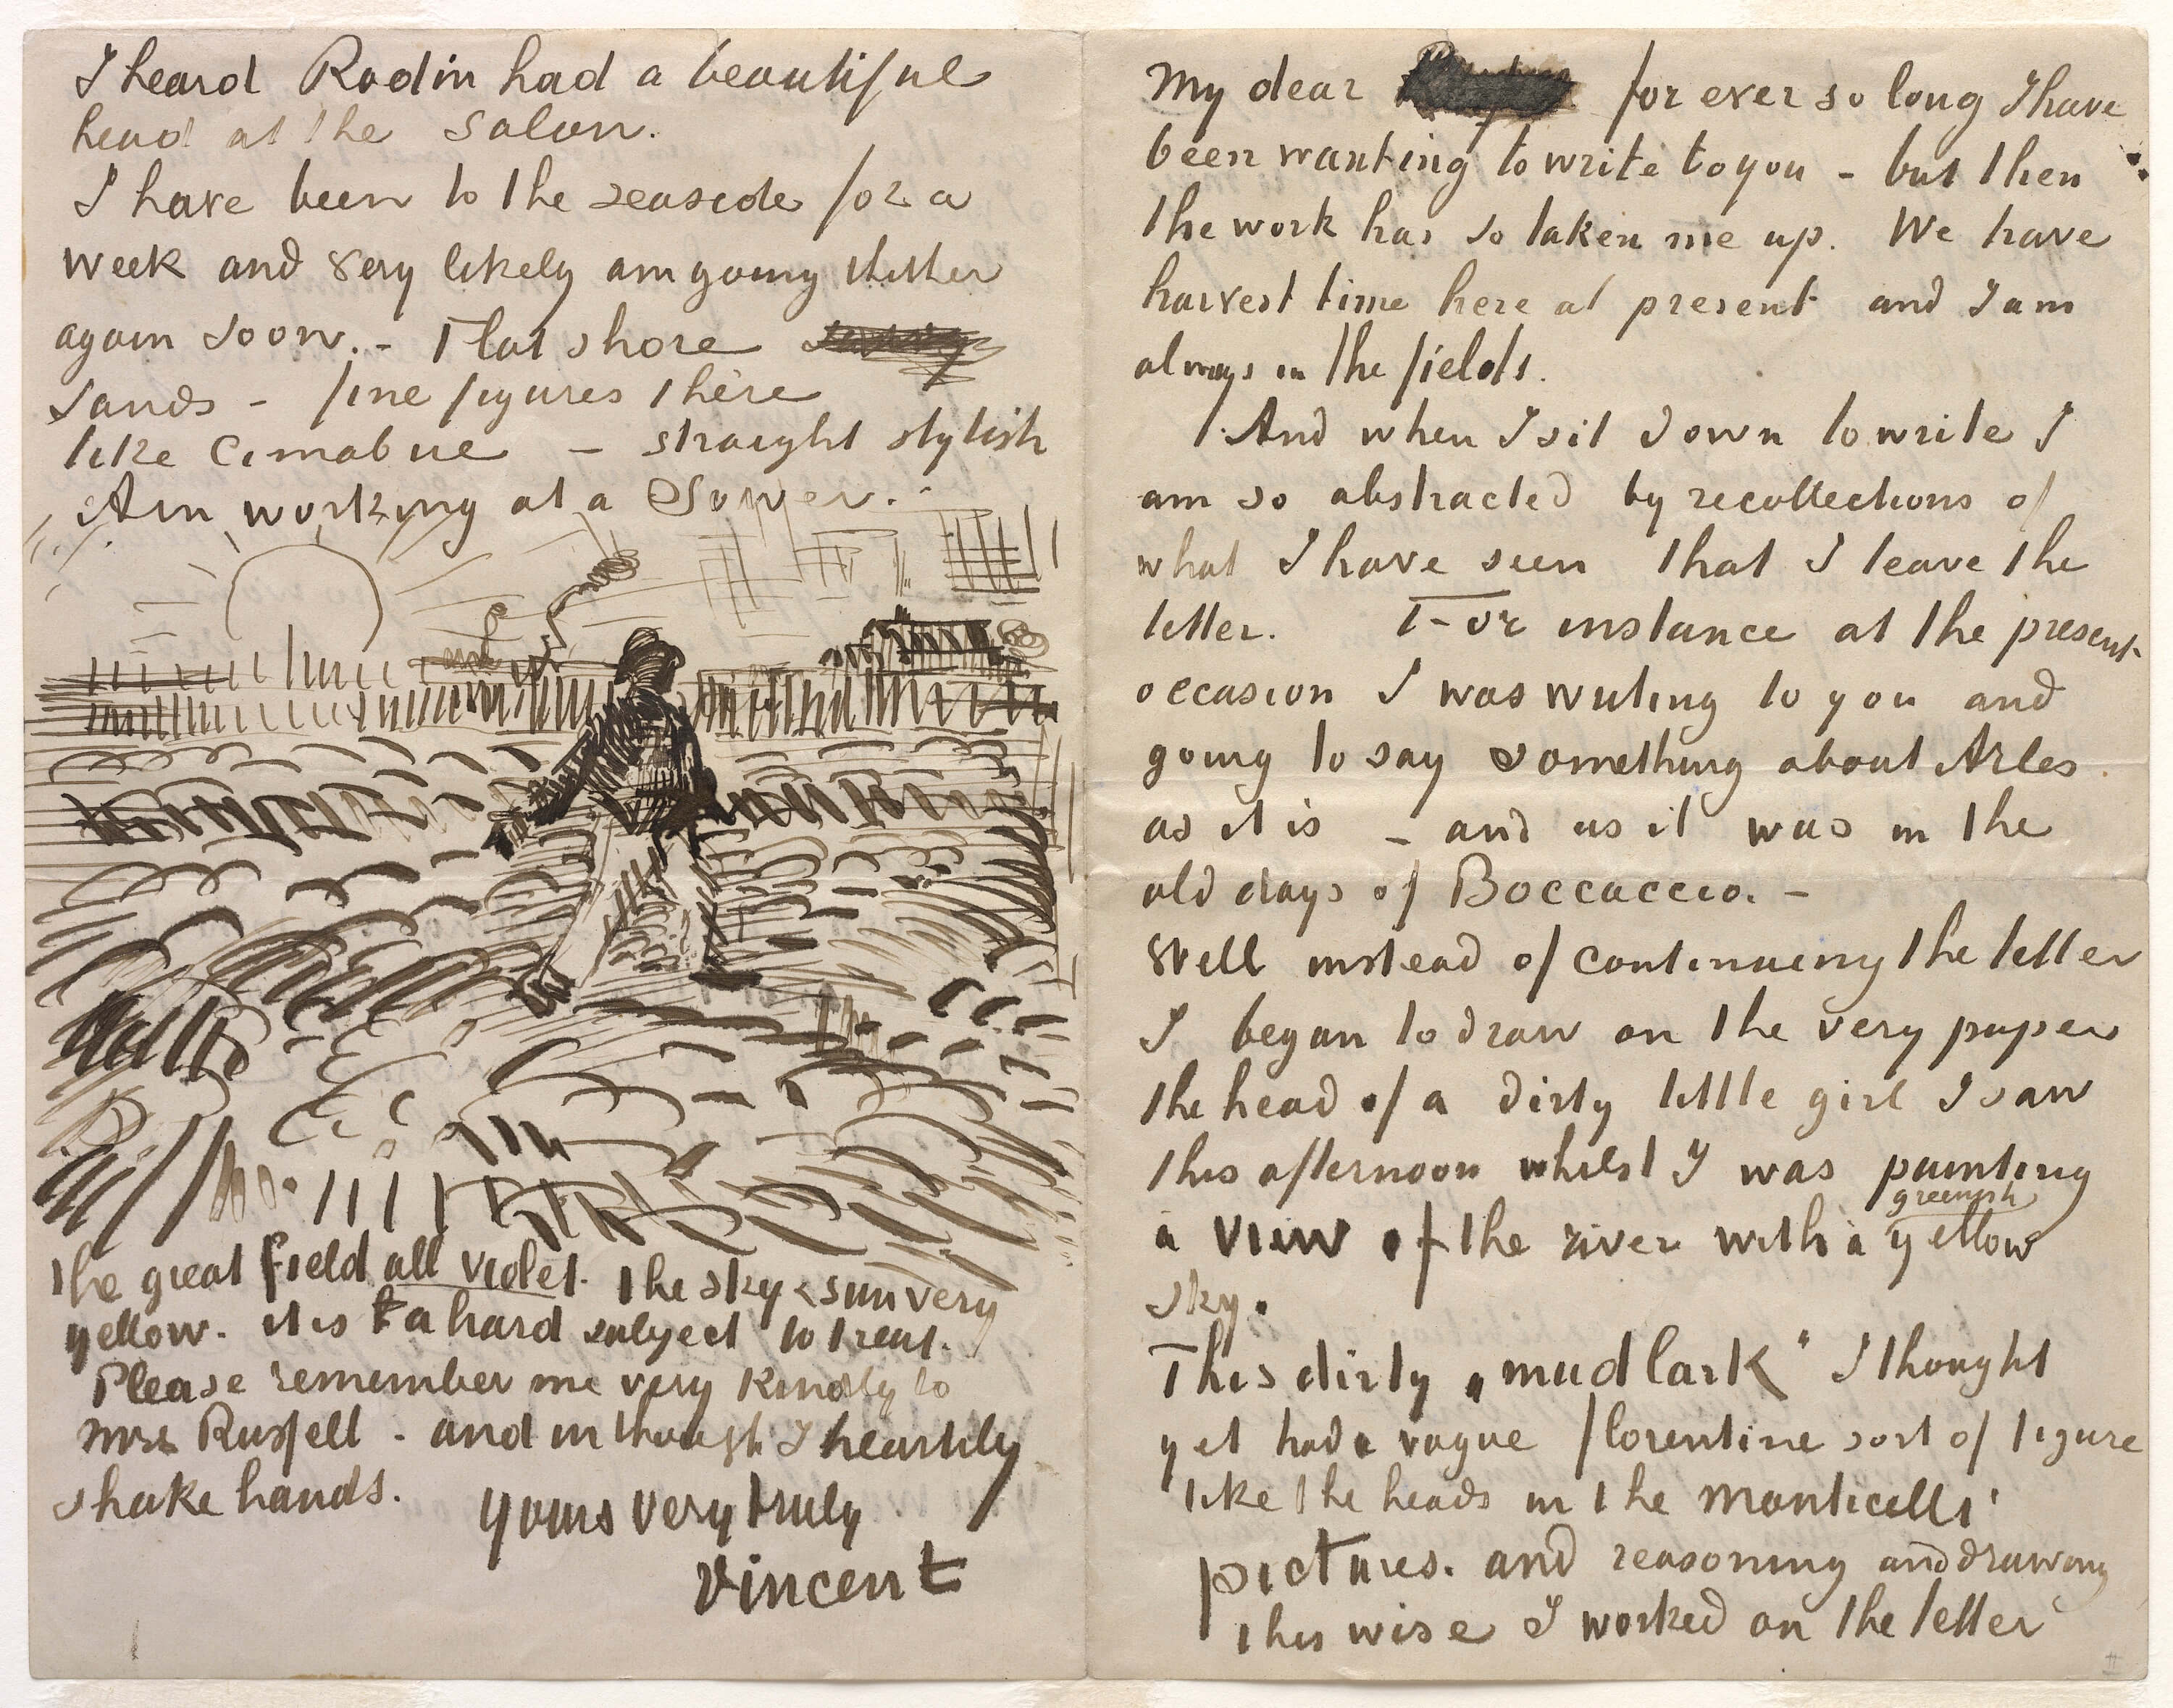 I heard Rodin had a beautiful
head at the salon.
I have been to the seaside for a
week and very likely am going thither
again soon. - Flat shore
sands - fine figures there
like Cimabue - straight stylish
Am working at a Sower.
the great field all violet. the sky & sun very
yellow. it is a hard subject to treat.
Please remember me very kindly to
Mrs Russell - and in thought I heartily
shake hands.
yours very truly
Vincent
My dear for ever so long I have
been wanting to write to you - but then
the work has so taken me up. We have
harvest time here at present and I am
always in the fields.
And when I sit down to write I
am so abstracted by recollections of
what I have seen that I leave the
letter. For instance at the present
occasion I was writing to you and
going to say something about Arles
as it is - and as it was in the
old days of Boccaccio. -
Well instead of continuing the letter
I began to draw on the very paper
the head of a dirty little girl I saw
this afternoon whilst I was painting
a view of the river with a greenish yellow
sky.
This dirty „mudlark" I thought
yet had a vague florentine sort of figure
like the heads in the monticelli
pictures. and reasoning and drawing
this wise I worked on the letter